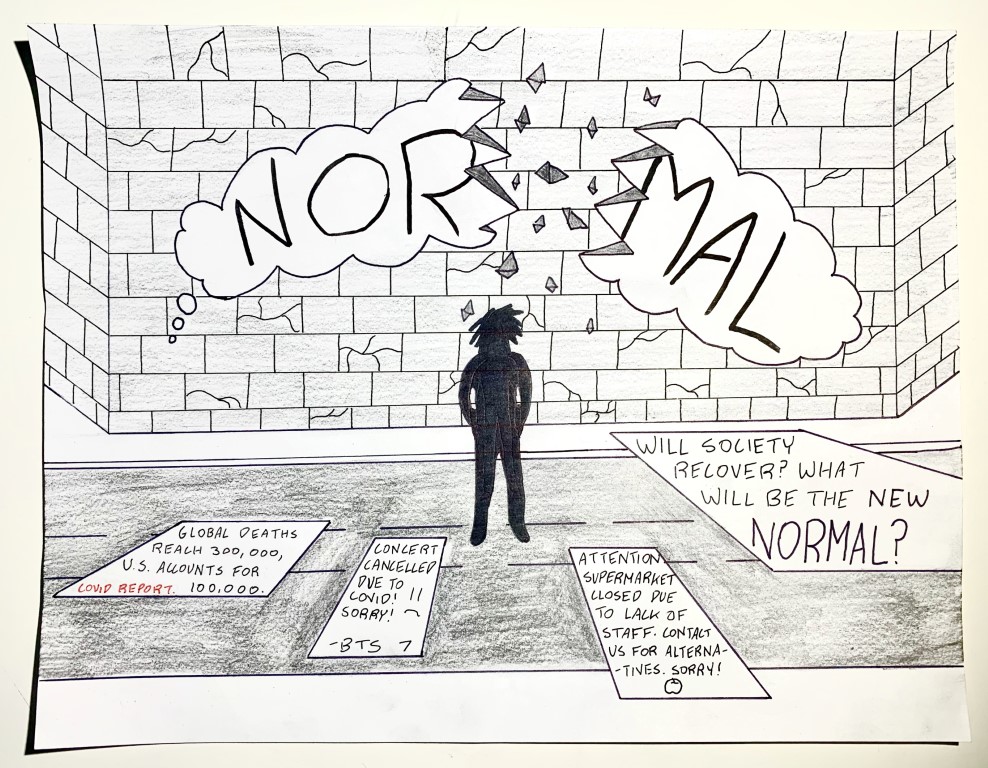 NOR
MAL
WILL SOCIETY
RECOVER? WHAT
WILL BE THE NEW
NORMAL?
GLOBAL DEATHS
REACH 300,000,
U.S. ACCOUNTS FOR
COVID REPORT. 100,000.
CONCERT
CANCELLED
DUE TO
COVID!
SORRY!
-BTS 7
ATTENTION
SUPERMARKET
CLOSED DUE
TO LACK OF
STAFF. CONTACT
US FOR ALTERNA-
-TIVES. SORRY!